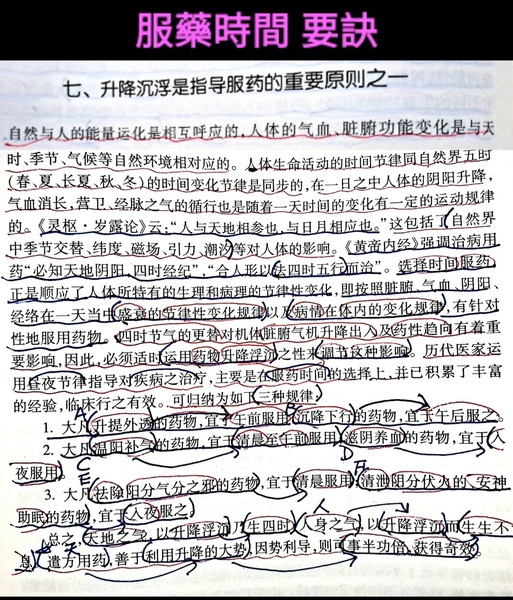 服藥時間 要訣
七、升降沉浮是指导服药的重要原则之一
自然与人的能量运化是相互呼应的,人体的气血、脏腑功能变化是与天
时、季节、气候等自然环境相对应的。人体生命活动的时间节律同自然界五时
(春、夏、长夏、秋、冬)的时间变化节律是同步的,在一日之中人体的阴阳升降,
气血消长,营卫、经脉之气的循行也是随着一天时间的变化有一定的运动规律
的。《灵枢·岁露论》云:“人与天地相参也,与日月相应也。”这包括了自然界
中季节交替、纬度、磁场、引力、潮汐等对人体的影响。《黄帝内经》强调治病用
药“必知天地阴阳,四时经纪”,“合人形以法四时五行而治”。选择时间服药,
正是顺应了人体所特有的生理和病理的节律性变化,即按照脏腑、气血、阴阳、
经络在一天当中盛衰的节律性变化规律以及病情在体内的变化规律,有针对
性地服用药物。四时节气的更替对机体脏腑气机升降出入及药性趋向有着重
要影响,因此,必须适时运用药物升降浮沉之性来调节这种影响。历代医家运
用昼夜节律指导对疾病之治疗,主要是在服药时间的选择上,并已积累了丰富
的经验,临床行之有效。可归纳为如下三种规律:
A B
1. 大凡升提外透的药物,宜于午前服用;沉降下行的药物,宜于午后服之。
2. 大凡温阳补气的药物,宜于清晨至午前服用;滋阴养血的药物,宜于入
夜服用。
C D
E F
3. 大凡祛除阳分气分之邪的药物,宜于清晨服用;清泄阴分伏火的、安神
助眠的药物,宜于入夜服之。
总之,天地之气,以升降浮沉乃生四时;人身之气,以升降浮沉而生生不
息,遣方用药,善于利用升降的大势,因势利导,则可事半功倍,获得奇效。